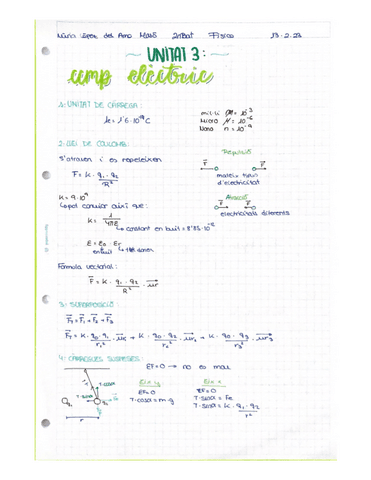 Núria López del Amo Masó 2nBat Física 13-2-24
UNITAT 3:
camp elèctric
1. UNITAT DE CÀRREGA:
1e = 1'6·10⁻¹⁹ C
mil·li m = 10⁻³
Micro μ = 10⁻⁶
Nano n = 10⁻⁹
2. LLEI DE COULOMB:
S'atrauen i es repeleixen
Repulsió
F = K · q₁ · q₂ / R²
mateix tipus
d'electricitat
Atracció
K = 9·10⁹
electricitats diferents
K = 1 / 4πε
constant en buit = 8'85·10⁻¹²
ε = ε₀ · εr
en buit
Fórmula vectorial:
F = K · q₁ · q₂ / R² · ur
3. SUPERPOSICIÓ:
FT = F₁ + F₂ + F₃
FT = K · q₀ · q₁ / r₁² · ur₁ + K · q₀ · q₂ / r₂² · ur₂ + K · q₀ · q₃ / r₃² · ur₃
4. CÀRREGUES SUSPESES:
ΣF=0 → no es mou
T·cosα
T·sinα
Eix y
ΣF=0
T·cosα = m·g
Eix x
ΣF=0
T·sinα = Fe
T·sinα = K · q₁ · q₂ / r²
r